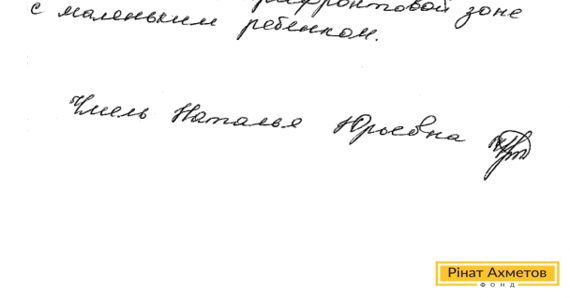 прифронтовой зоне
с маленьким ребенком.
Чмель Наталья Юрьевна
Рінат Ахметов
ФОНД